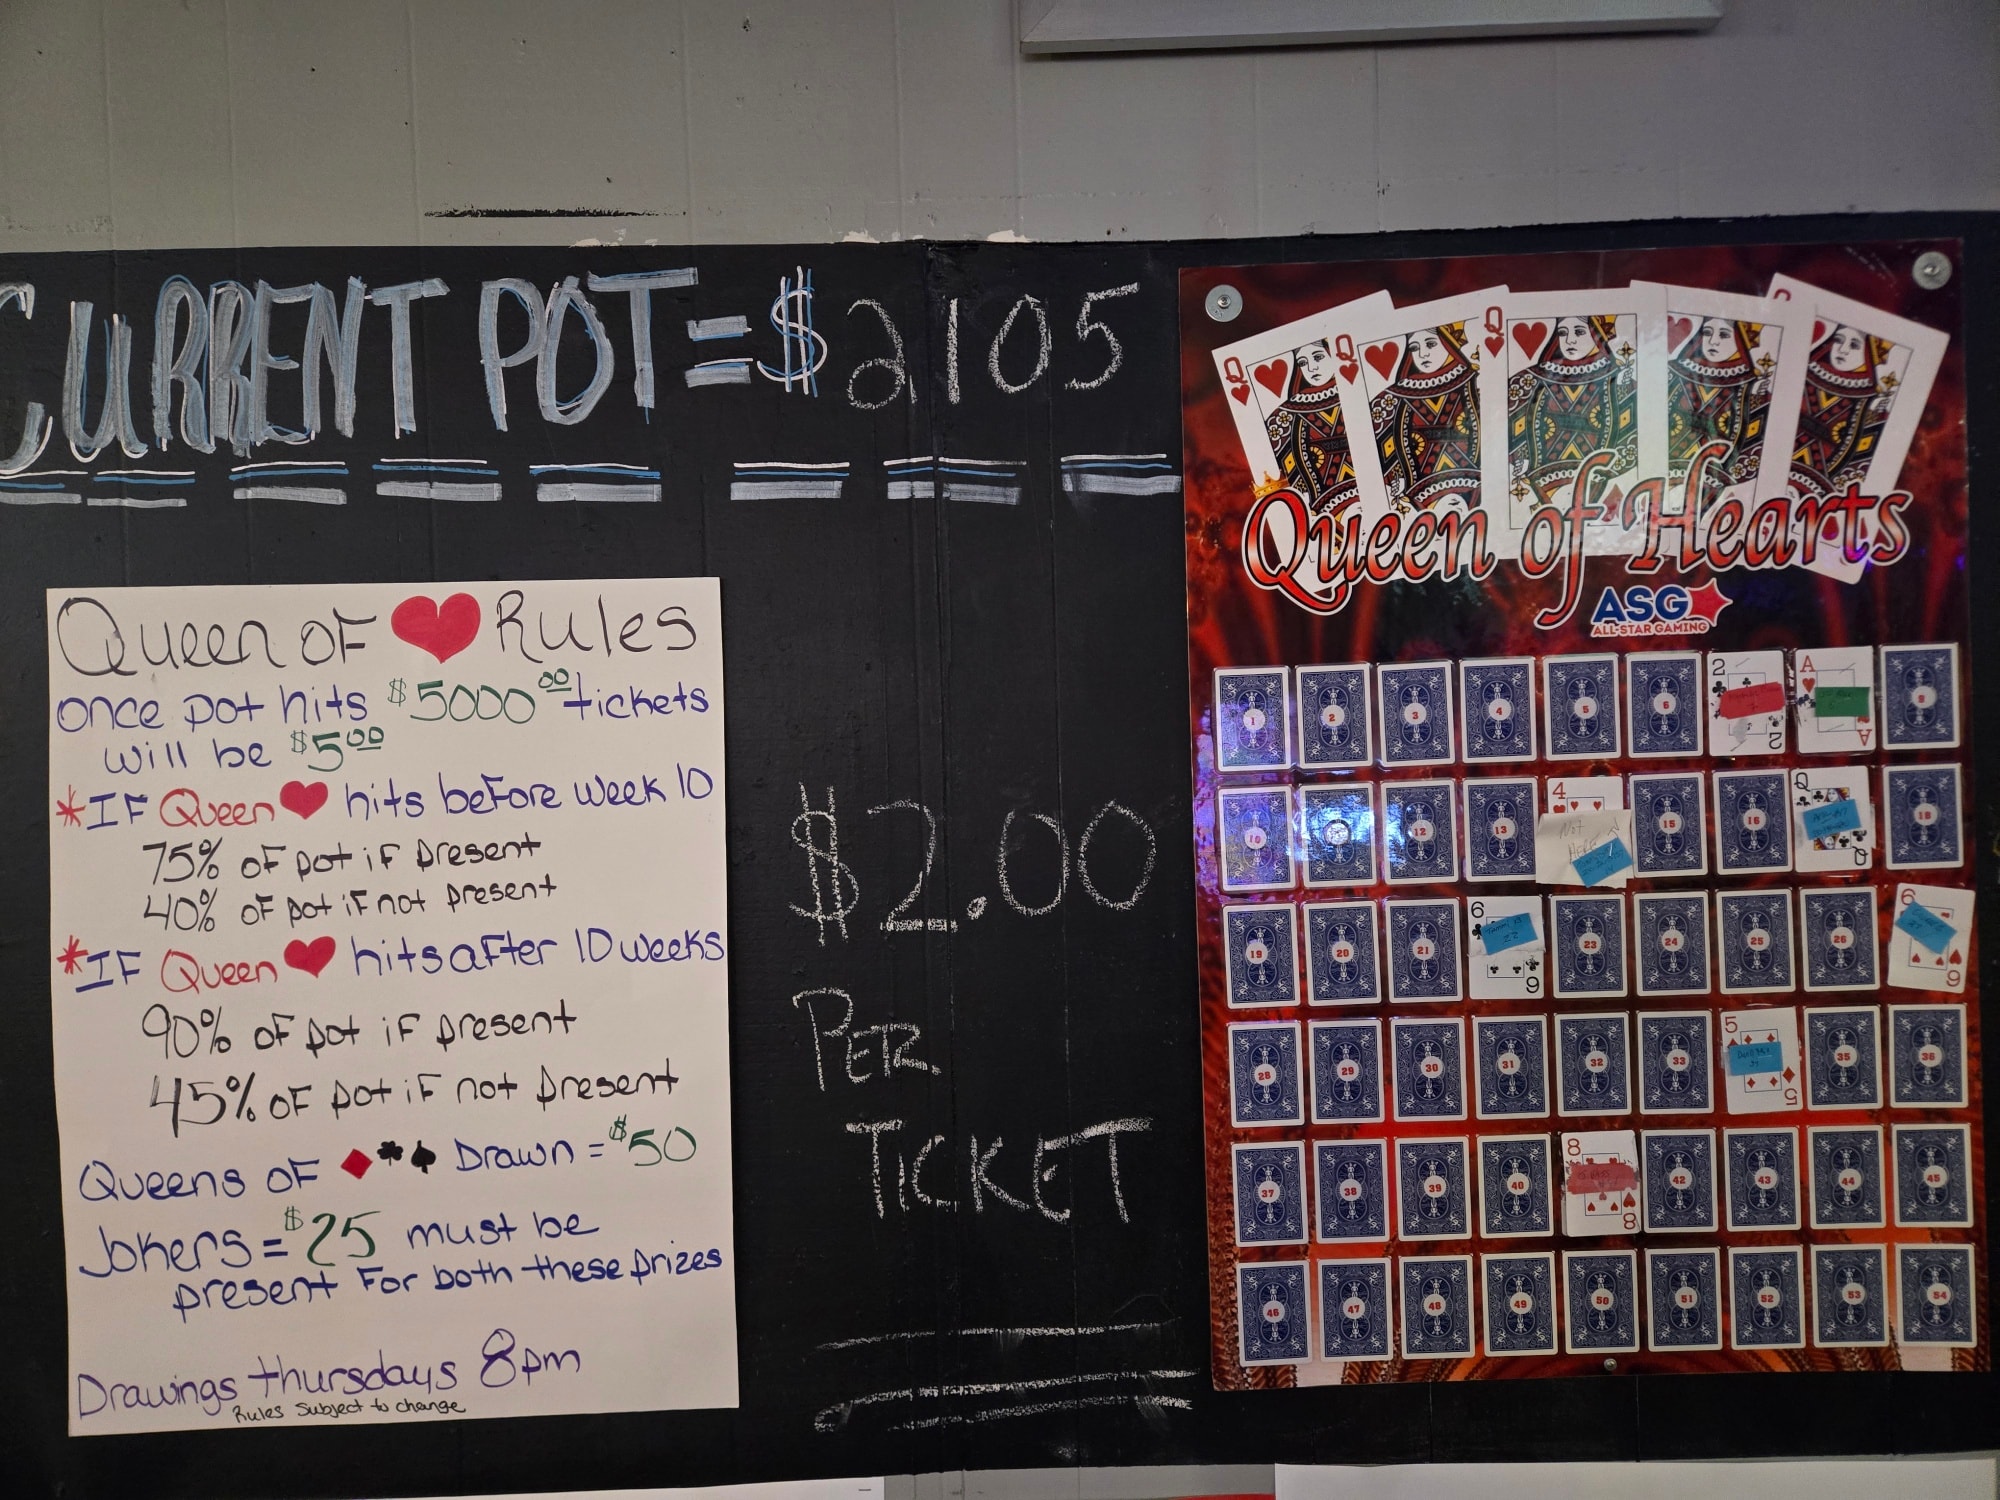 CURRENT POT = $ 2,105
QUEEN OF ❤ Rules
once pot hits $5000.00 tickets
will be $5.00
*IF Queen ❤ hits before week 10
75% of pot if present
40% of pot if not present
*IF Queen ❤ hits after 10 weeks
90% of pot if present
45% of pot if not present
Queens of ♦ ♣ ♠ Drawn = $50
Jokers = $25 must be
present for both these prizes
Drawings thursdays 8pm
Rules Subject to change
$2.00
PER
TICKET
Q Q Q
Queen of Hearts
ASG
ALL-STAR GAMING
1 2 3 4 5 6 2 2 A A 9
10 12 13 4 NOT HERE 15 16 Q Q 18
19 20 21 6 Tammy 22 6 23 24 25 26 6 6
28 29 30 31 32 33 5 5 35 36
37 38 39 40 8 8 42 43 44 45
46 47 48 49 50 51 52 53 54